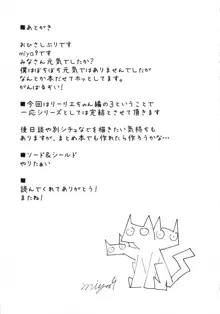 ■あとがき
おひさしぶりです
miya9です
みなさん元気でしたか？
僕はぼちぼち元気ではありませんでしたが
なんとか本だせてホッとしてます
がんばるぞい！
■今回はリーリエちゃん編の3ということで
一応シリーズとしては完結とさせて頂きます
後日談や別シチュなどを描きたい気持ちも
ありますが、まとめ本でも作れたら作ろうかな…
■ソード&シールド
やりたぁい
■
読んでくれてありがとう！
またね！
miya9